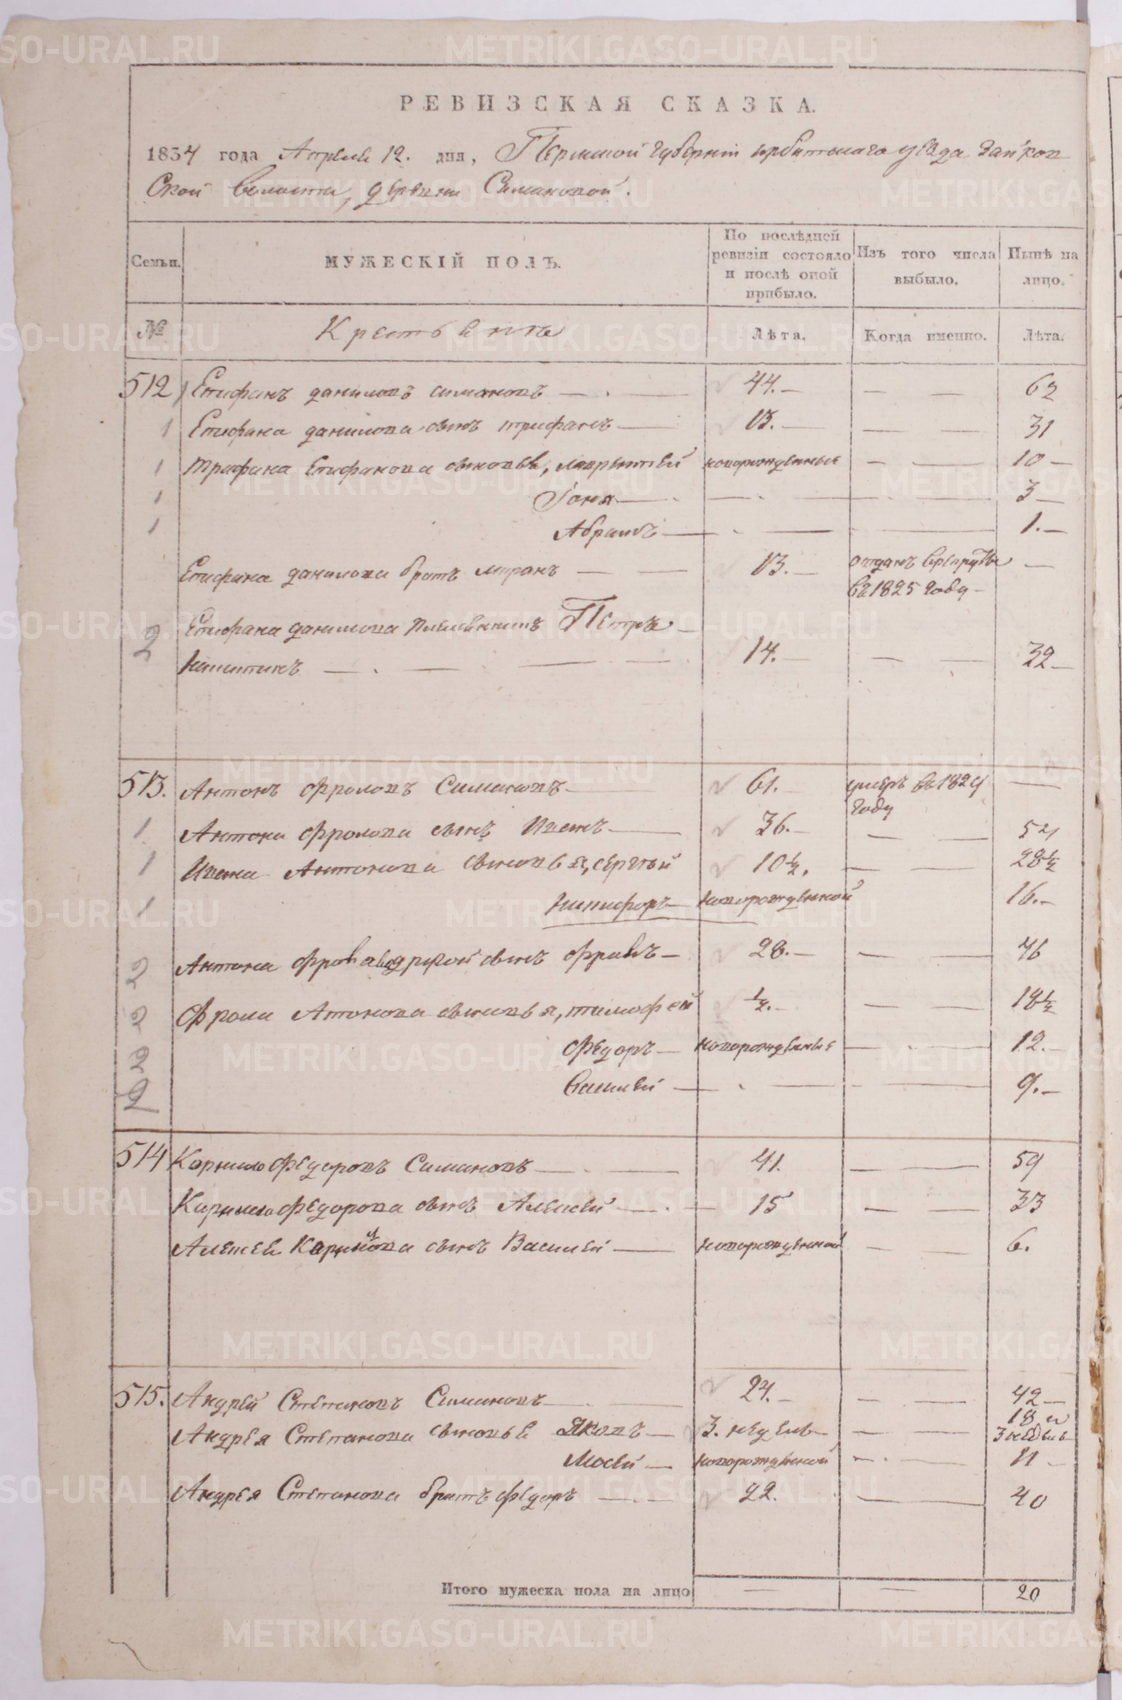 РЕВИЗСКАЯ СКАЗКА.
1834 года Апреля 12. дня, Пермской губернiи ирбитскаго уезда Зайков
ской Волости, деревни Симановой.
Семьи. МУЖЕСКІЙ ПОЛЪ. По послѣдней ревизіи состояло и послѣ оной прибыло. Изъ того числа выбыло. Нынѣ на лицо.
№ Крестьянъ Лѣта. Когда именно. Лѣта.
512 Епифанъ даниловъ симановъ — 44. — — 62
1 Епифана данилова сынъ трифанъ — 13. — — 31
1 трифана Епифанова сыновья, лаврентей новорожденные — — 10 —
1 Ганя — — — 3 —
1 Абрамъ — — — 1. —
Епифана данилова братъ миронъ — 13. — отданъ врекруты —
въ 1825 году —
2 Епифана данилова племянникъ Петръ —
никитинъ — 14. — — 32 —
513. Антонъ фроловъ Симановъ — 61. — умеръ въ 1824 —
году
1 Антона фролова сынъ Иванъ — 36. — — 54
1 Ивана Антонова сыновья, сергей 10½. — 28½
1 Никифоръ — новорожденной 16. —
2 Антона фролова другой сынъ фролъ — 28. — — 46
2 фрола Антонова сыновья, тимофей ½. — — 18½
2 федоръ — новорожденные — 12. —
2 Василей — — — 9. —
514 Карнило федоровъ Симановъ — 41. — 59
Карнило федорова сынъ Алексей — 15 — — 33
Алексея Карнилова сынъ Василей — новорожденной — — 6.
515. Андрей Степановъ Симановъ — 24. — — 42 —
Андрея Степанова сыновья Яковъ — 3. недель — — — 18 и
3 недель
Мосей — новорожденной — — 11 —
Андрея Степанова братъ федоръ — 22. — 40
Итого мужеска пола на лицо — — 20
METRIKI.GASO-URAL.RU